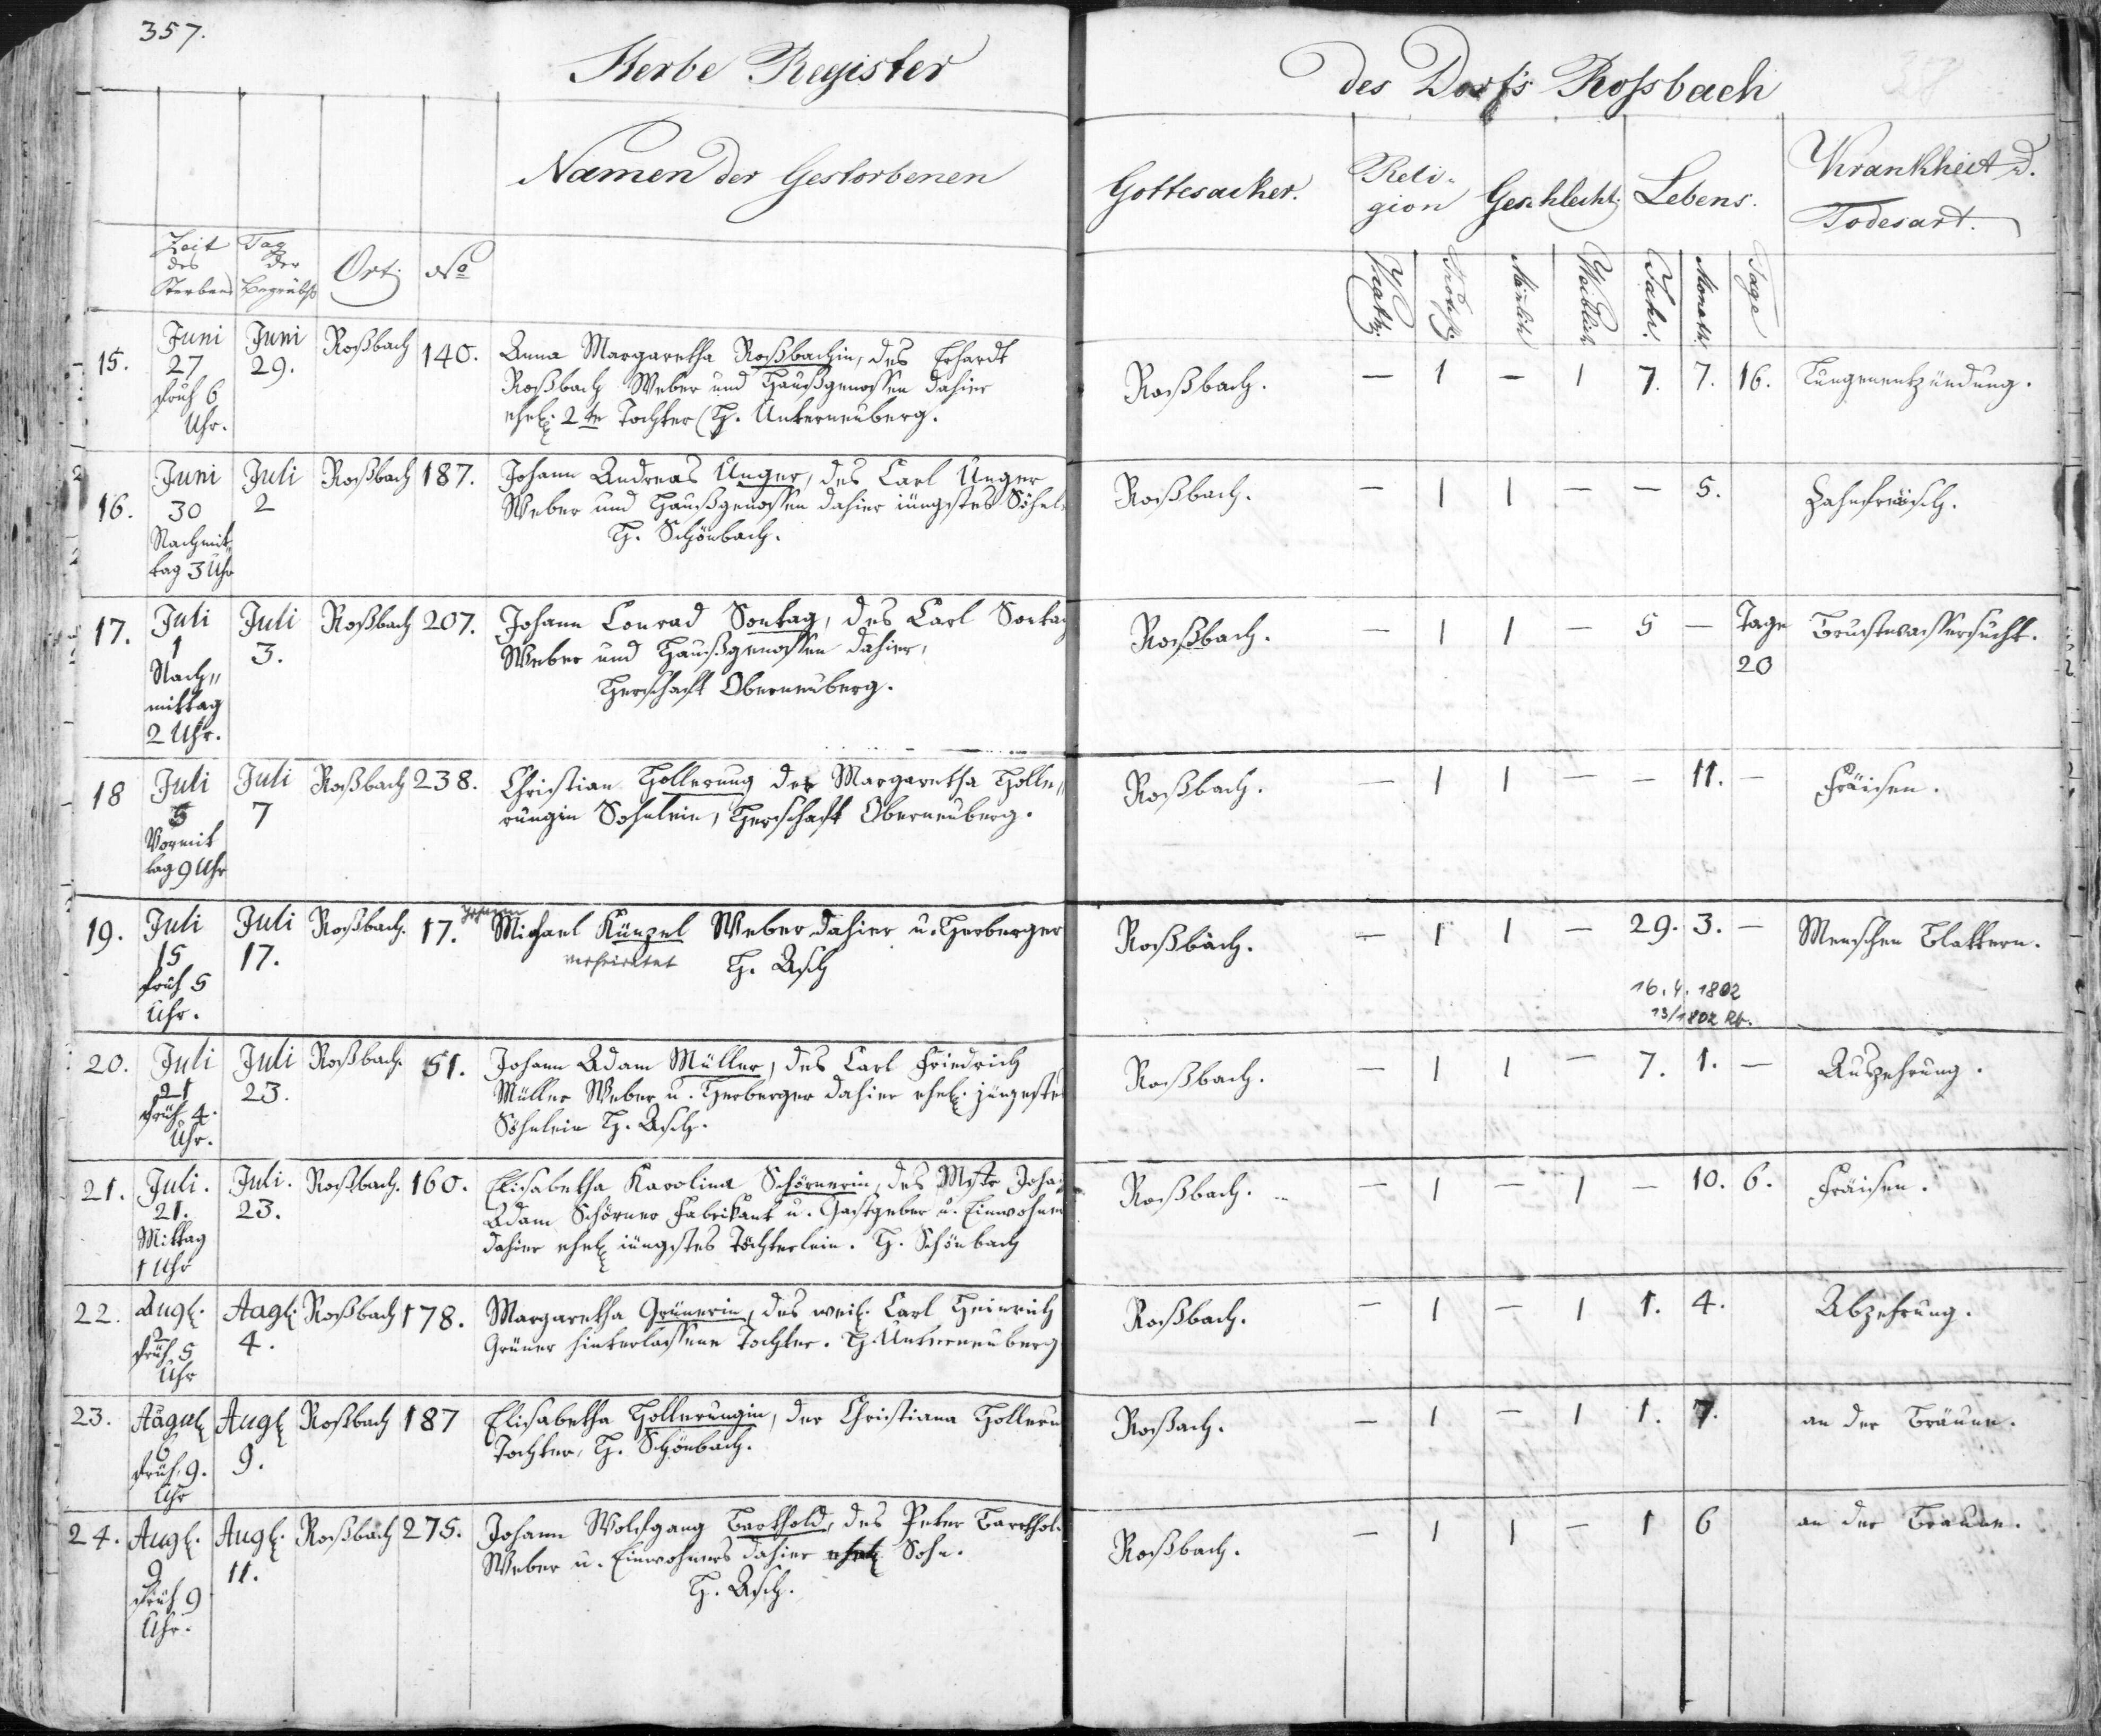 357.
Sterbe Register
Namen der Gestorbenen
Zeit des Sterbens
Tag der Begräbß
Ort
No
15.
Juni
27
fruh 6
Uhr.
Juni
29.
Roßbach
140.
Anna Margaretha Roßbachin, des Erhardt
Roßbach Weber und Haußgenossen dahier
ehel. 2te Tochter H. Unterneuberg.
16.
Juni
30
Nachmit-
tag 3 Uhr
Juli
2
Roßbach
187.
Johann Andreas Unger, des Carl Unger
Weber und Haußgenossen dahier jüngstes Söhnl
H. Schönbach.
17.
Juli
1
Nach-
mittag
2 Uhr.
Juli
3.
Roßbach
207.
Johann Conrad Sontag, des Carl Sontag
Weber und Haußgenossen dahier,
Herschaft Oberneuberg.
18
Juli
5
Vormit
tag 9 Uhr
Juli
7
Roßbach
238.
Christian Hollerung der Margaretha Holle-
rungin Sohnlein, Herschaft Oberneuberg.
19.
Juli
15
fruh 5
Uhr.
Juli
17.
Roßbach.
17.
Johann
Michael Künzel Weber dahier u. Herberger
verheiratet H. Asch
20.
Juli
21
fruh 4.
Uhr.
Juli
23.
Roßbach.
51.
Johann Adam Müller, des Carl Friedrich
Müller Weber u. Herberger dahier ehel. jüngstes
Söhnlein H. Asch.
21.
Juli.
21.
Mittag
1 Uhr
Juli.
23.
Roßbach.
160.
Elisabetha Karolina Schörnerin, des Mstr Joha
Adam Schörner Fabrikant u. Gastgeber u. Einwohner
dahier ehel jüngstes Töchterlein. H. Schönbach
22.
Augl.
2
fruh 5
Uhr
Aagl.
4.
Roßbach
178.
Margaretha Grünerin, des weil. Carl Heinrich
Grüner hinterlassene Tochter. H. Unterneuberg
23.
6
früh 9.
Uhr
Augl
9.
Roßbach
187
Elisabetha Hollerungin, der Christiana Holleru
Tochter, H. Schönbach.
24.
Augl.
9
früh 9
Uhr.
Augl.
11.
Roßbach
275.
Johann Wolfgang Barthold, des Peter Barthold
Weber u. Einwohners dahier ehel Sohn.
H. Asch.
des Dorfs Rossbach
Gottesacker.
Reli-
gion
Geschlecht.
Lebens.
Krankheit u.
Todesart.
Kathl.
Männlich
Weiblich
Jahr.
Monath.
Tage
Roßbach. — 1 — 1 7. 7. 16. Lungenentzündung.
Roßbach. — 1 1 — — 5. Zahnfraisch.
Roßbach. — 1 1 — 5 — Tage 20 Brustwassersucht.
Roßbach. — 1 1 — — 11. — Fräisen.
Roßbach. — 1 1 — 29. 3. — Menschen Blattern.
16.4.1802
13/1802 Rb.
Roßbach. — 1 1 — 7. 1. — Auszehrung.
Roßbach. — 1 — 1 — 10. 6. Fräisen.
Roßbach. — 1 — 1 1. 4. Abzehrung.
Roßach. — 1 — 1 1. 7. an der Bräune.
Roßbach. — 1 1 — 1 6 an der Braune.